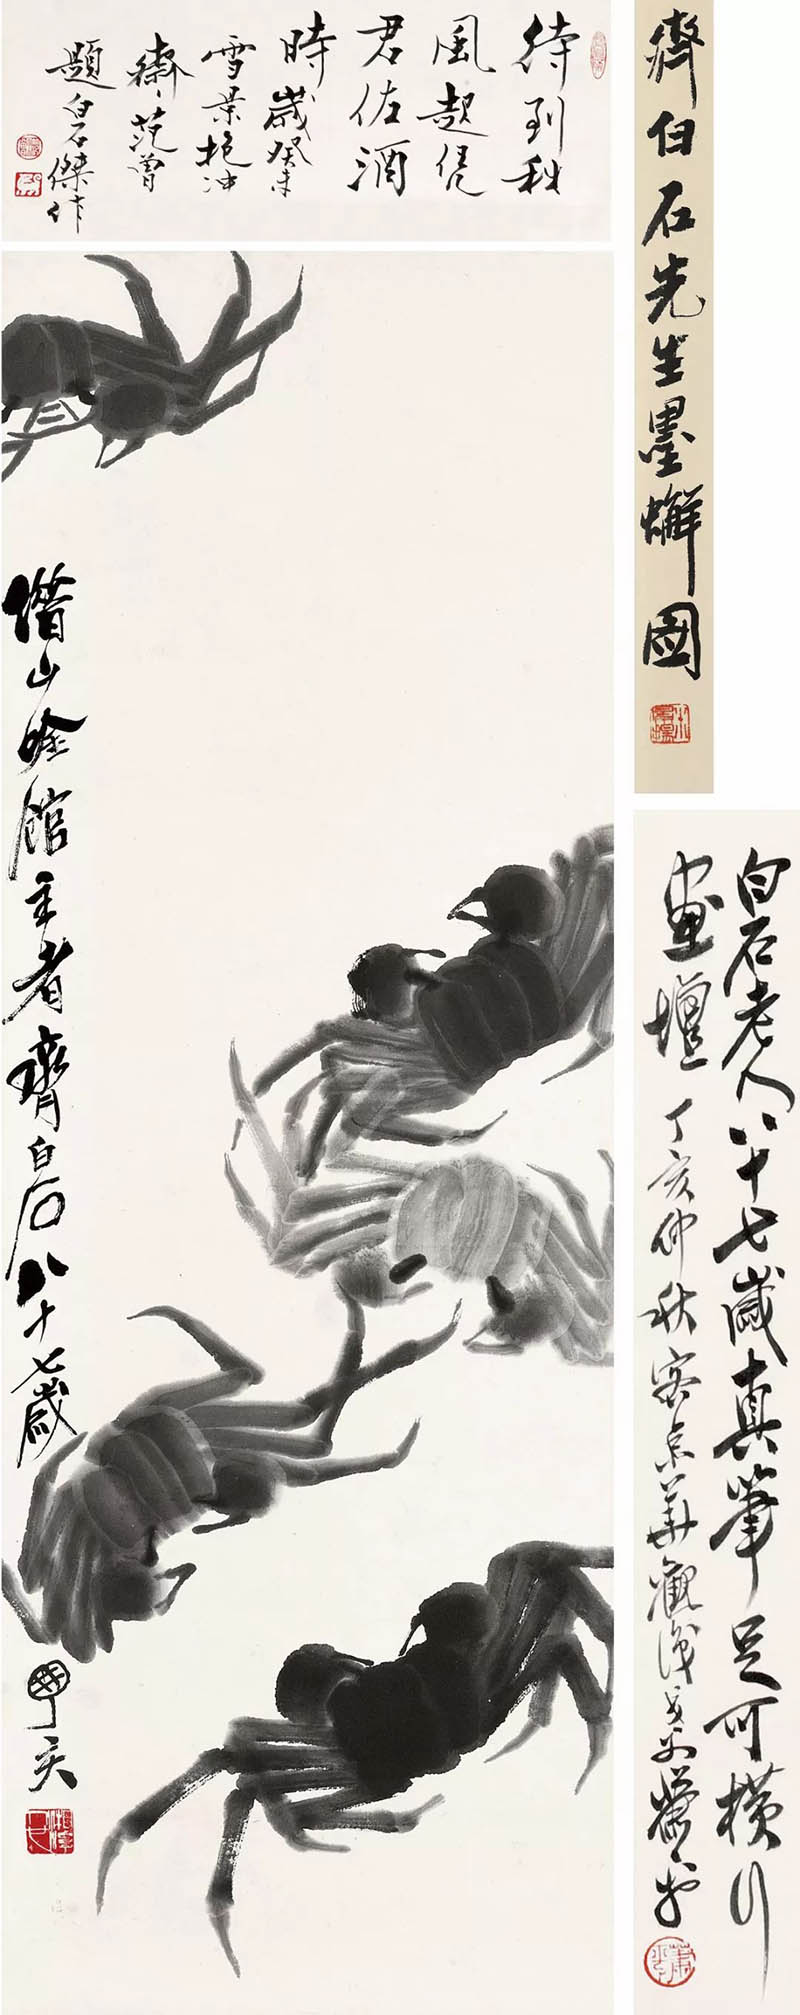 待到秋
風起凭
君佐酒
時歲癸未
雪景抱冲
齋范曾
題白石傑作
齊白石先生墨蠏圖
借山吟館主者齊白石八十七歲
丁亥
白石老人八十七歲真筆足可橫行
畫壇丁亥仲秋客京華觀後